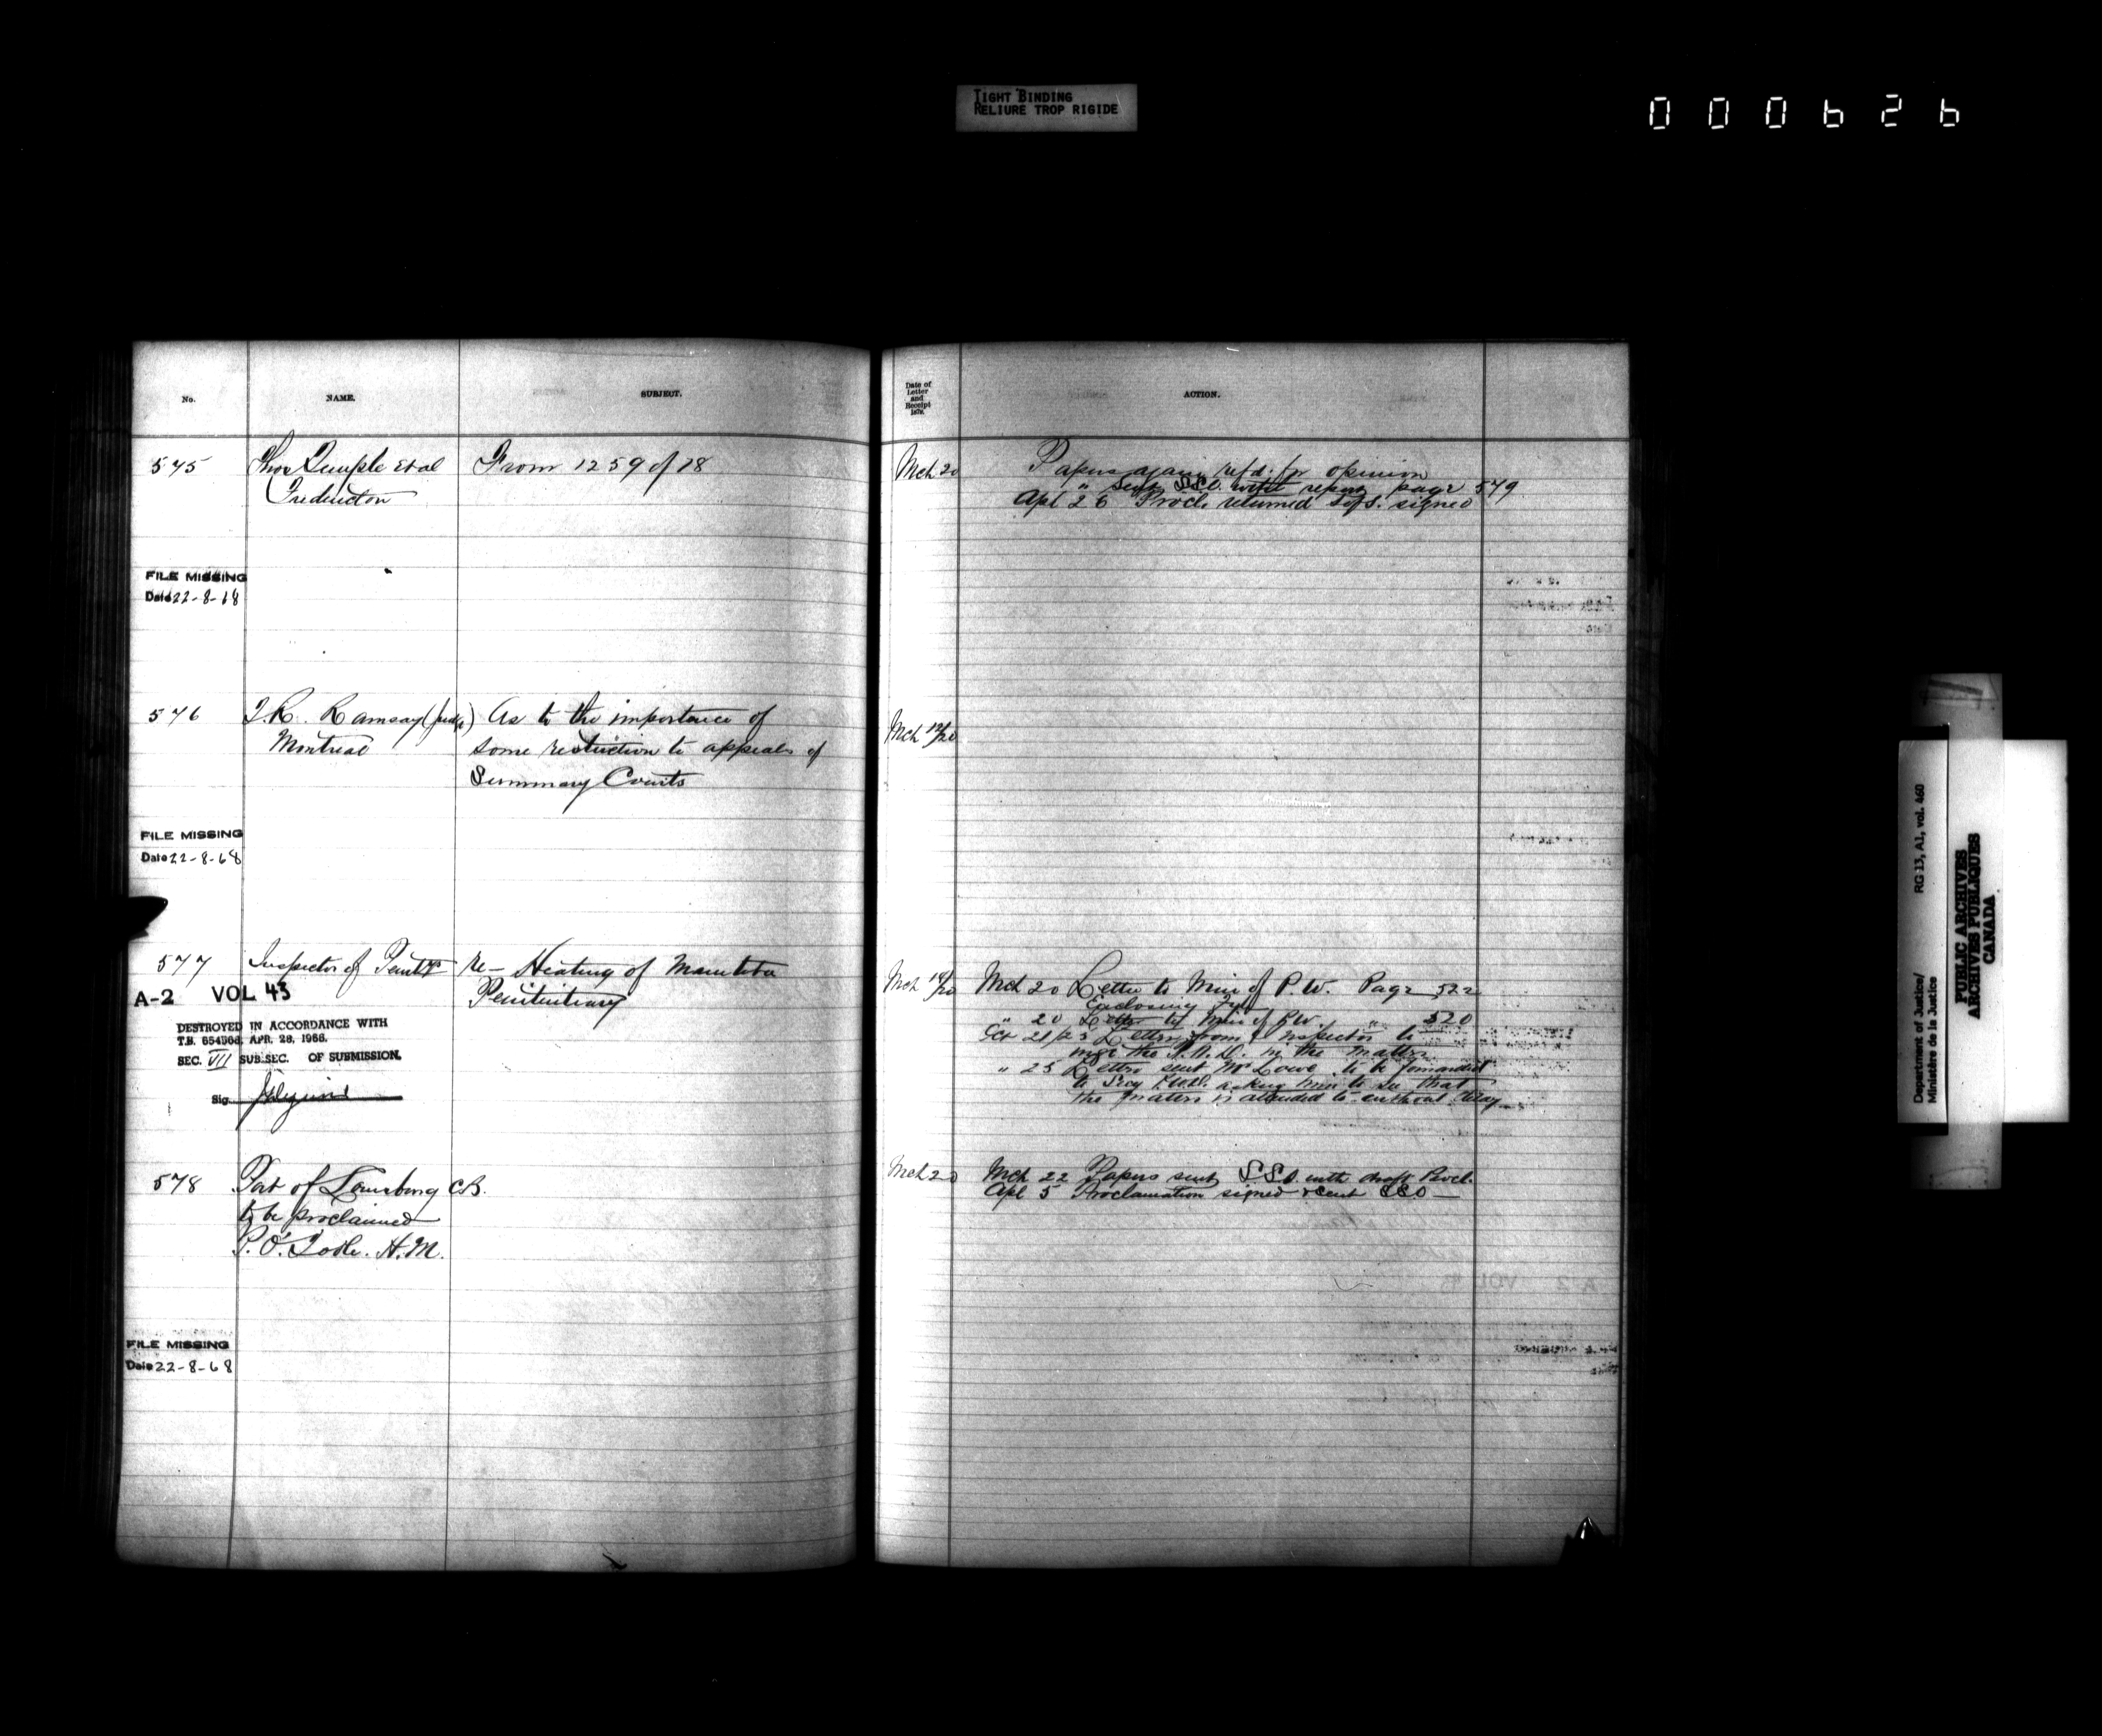 TIGHT BINDING
RELIURE TROP RIGIDE
000626
No. NAME. SUBJECT.
575 Thos Temple et al From 1259 of 78
Fredericton
FILE MISSING
Date 22-8-68
576 T.K. Ramsay (Judge) As to the importance of
Montreal some restriction to appeals of
Summary Courts
FILE MISSING
Date 22-8-68
577 Inspector of Penits re- Heating of Manitoba
Penitentiary
A-2 VOL 43
DESTROYED IN ACCORDANCE WITH
T.B. APR. 28, 1966.
SEC. VII SUB.SEC. OF SUBMISSION.
Sig.
578 Port of Louisburg C.B.
to be proclaimed
P. O'Toole. H.M.
FILE MISSING
Date 22-8-68
Date of
Letter
and
Receipt
1879.
ACTION.
Mch 20 Papers again refd. for opinion
" Sent SSC. with report page 579
Apl 26 Procl. returned signed
Mch 19/20
Mch 19/20 Mch 20 Letter to Min of P.W. Page 522
Enclosing
" 20 Letter to Min of P.W. " 520
Oct 21/23 Letter from Inspector to
the in the matter
" 25 Letter sent Mr Lowe to be forwarded
to Secy asking him to see that
the matter is attended to without delay
Mch 20 Mch 22 Papers sent SSC with draft Procl.
Apl 5 Proclamation signed & sent SSC
Department of Justice/ RG 13, A1, vol. 460
Ministère de la Justice
PUBLIC ARCHIVES
ARCHIVES PUBLIQUES
CANADA